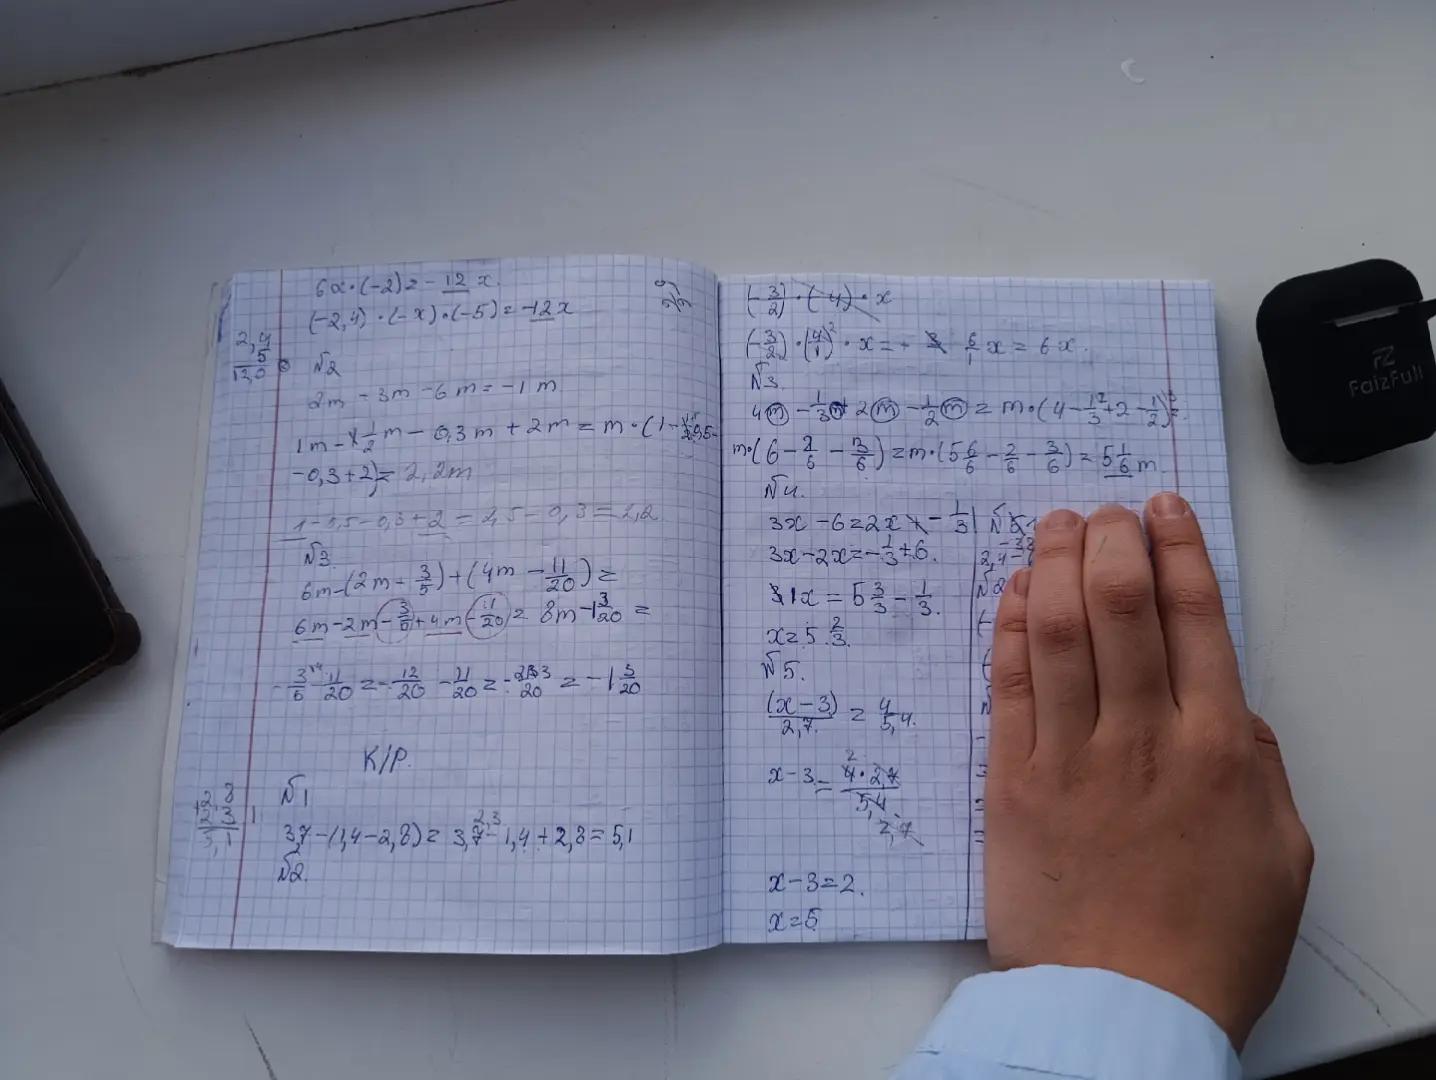 6x·(-2)=-12x.
(-2,4)·(-x)·(-5)=-12x
2,4
5
12,0
№2
2m-3m-6m=-1m
1m-1/2m-0,3m+2m=m·(1-0,5-
-0,3+2)=2,2m
1-0,5-0,3+2=2,5-0,3=2,2
№3.
6m-(2m-3/5)+(4m-11/20)=
6m-2m-3/5+4m-11/20=8m-1 3/20=
-3/5-11/20=-12/20-11/20=-23/20=-1 3/20
К/Р.
№1
2,8
2,3
5,1
2,3
3,7-(1,4-2,8)=3,7-1,4+2,8=5,1
№2.
(-3/2)·(-4)·x
(-3/2)·(4/1)²·x=+6/1x=6x.
№3.
4m-1/3m+2m-1/2m=m·(4-1/3+2-1/2)=
m·(6-2/6-3/6)=m·(5 6/6-2/6-3/6)=5 1/6m.
№4.
3x-6=2x-1/3
3x-2x=-1/3+6.
1x=5 3/3-1/3.
x=5 2/3.
№5.
(x-3)/2,7=4/5,4.
x-3=4·2,7/5,4
2
2,7
x-3=2.
x=5
№1
2,4-
№2
FZ
FaizFull